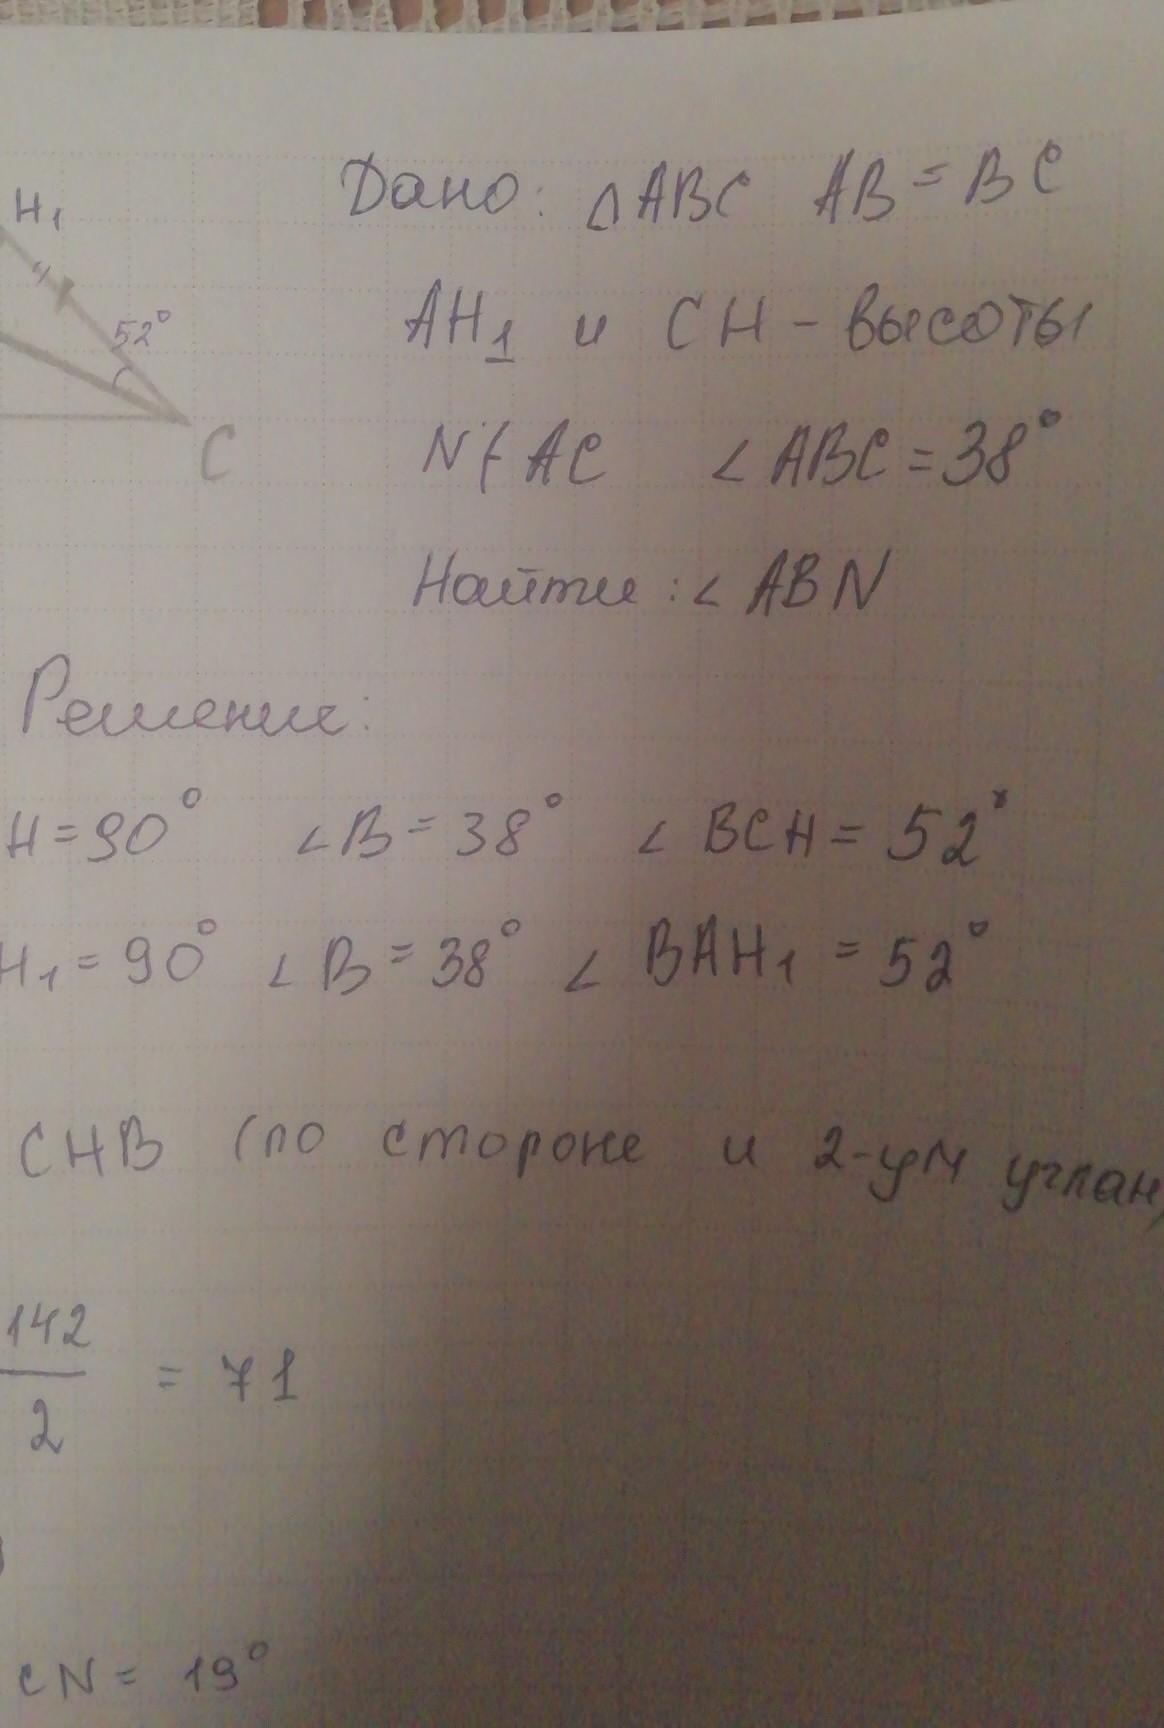 Дано: △ABC AB = BC
H₁
AH₁ и CH - высоты
52°
C
N ∈ AC ∠ABC = 38°
Найти: ∠ABN
Решение:
H = 90° ∠B = 38° ∠BCH = 52°
H₁ = 90° ∠B = 38° ∠BAH₁ = 52°
CHB (по стороне и 2-ум углам)
142
2
= 71
CN = 19°